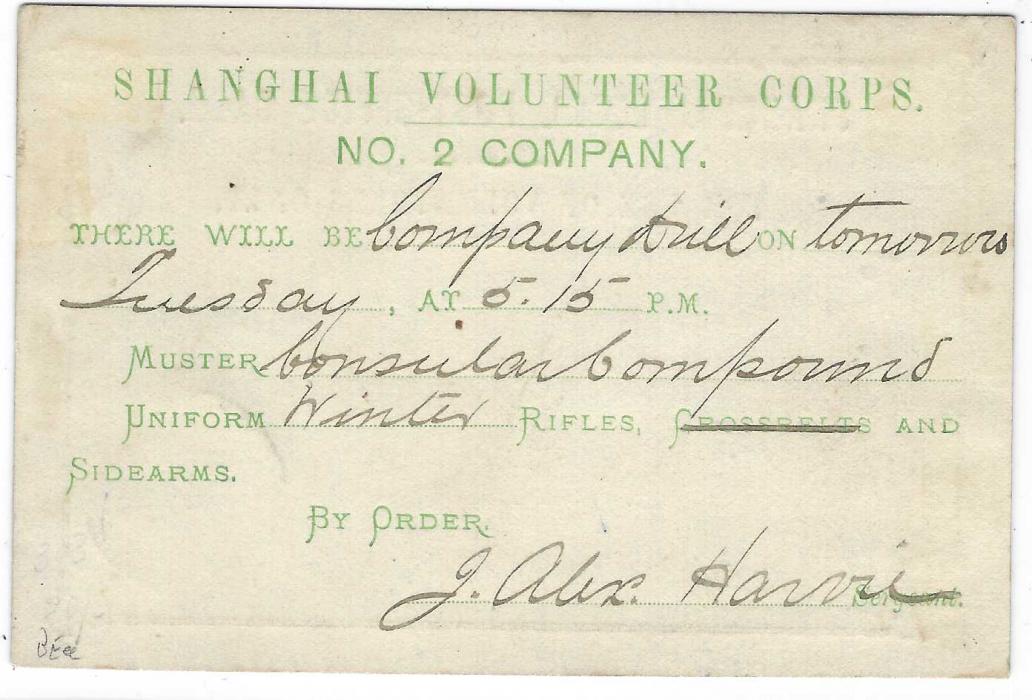 SHANGHAI VOLUNTEER CORPS.
NO. 2 COMPANY.
THERE WILL BE Company Drill ON tomorrow
Tuesday, AT 5.15 P.M.
MUSTER Consular Compound
UNIFORM Winter RIFLES, CROSSBELTS AND
SIDEARMS.
BY ORDER,
J. Alex. Harvie Sergeant.